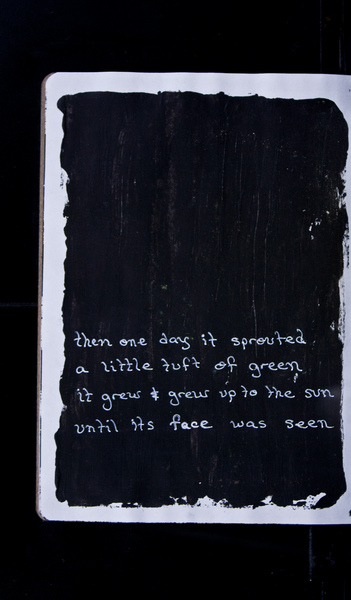 then one day it sprouted
a little tuft of green
it grew & grew up to the sun
until its face was seen